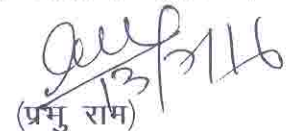 13/7/16
(प्रभु राम)